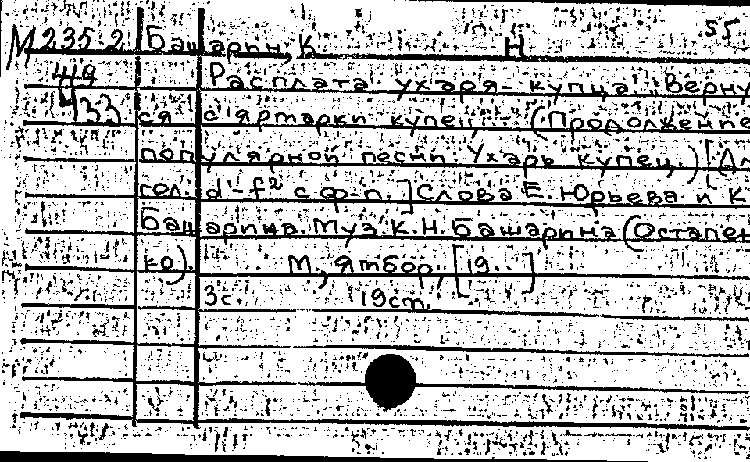 55
М 235.2 Башарин, К. Н
419 Расплата ухаря-купца. Верну
433 ся с ярмарки купец... (Продолжение
популярной песни: Ухарь купец.) [Дл
гол. d'-f² с ф-п.] Слова Е. Юрьева и К
Башарина. Муз. К.Н. Башарина (Остапен
ко).
М., ятбор, [19..]
3с. 19ст.